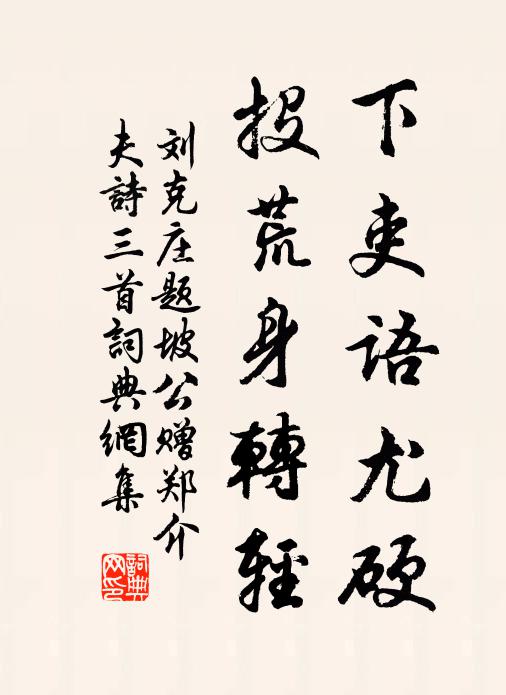 下吏語尤硬
投荒身轉輕
刘克庄题坡公赠郑介
夫詩三首詞典網集
詞典
网印